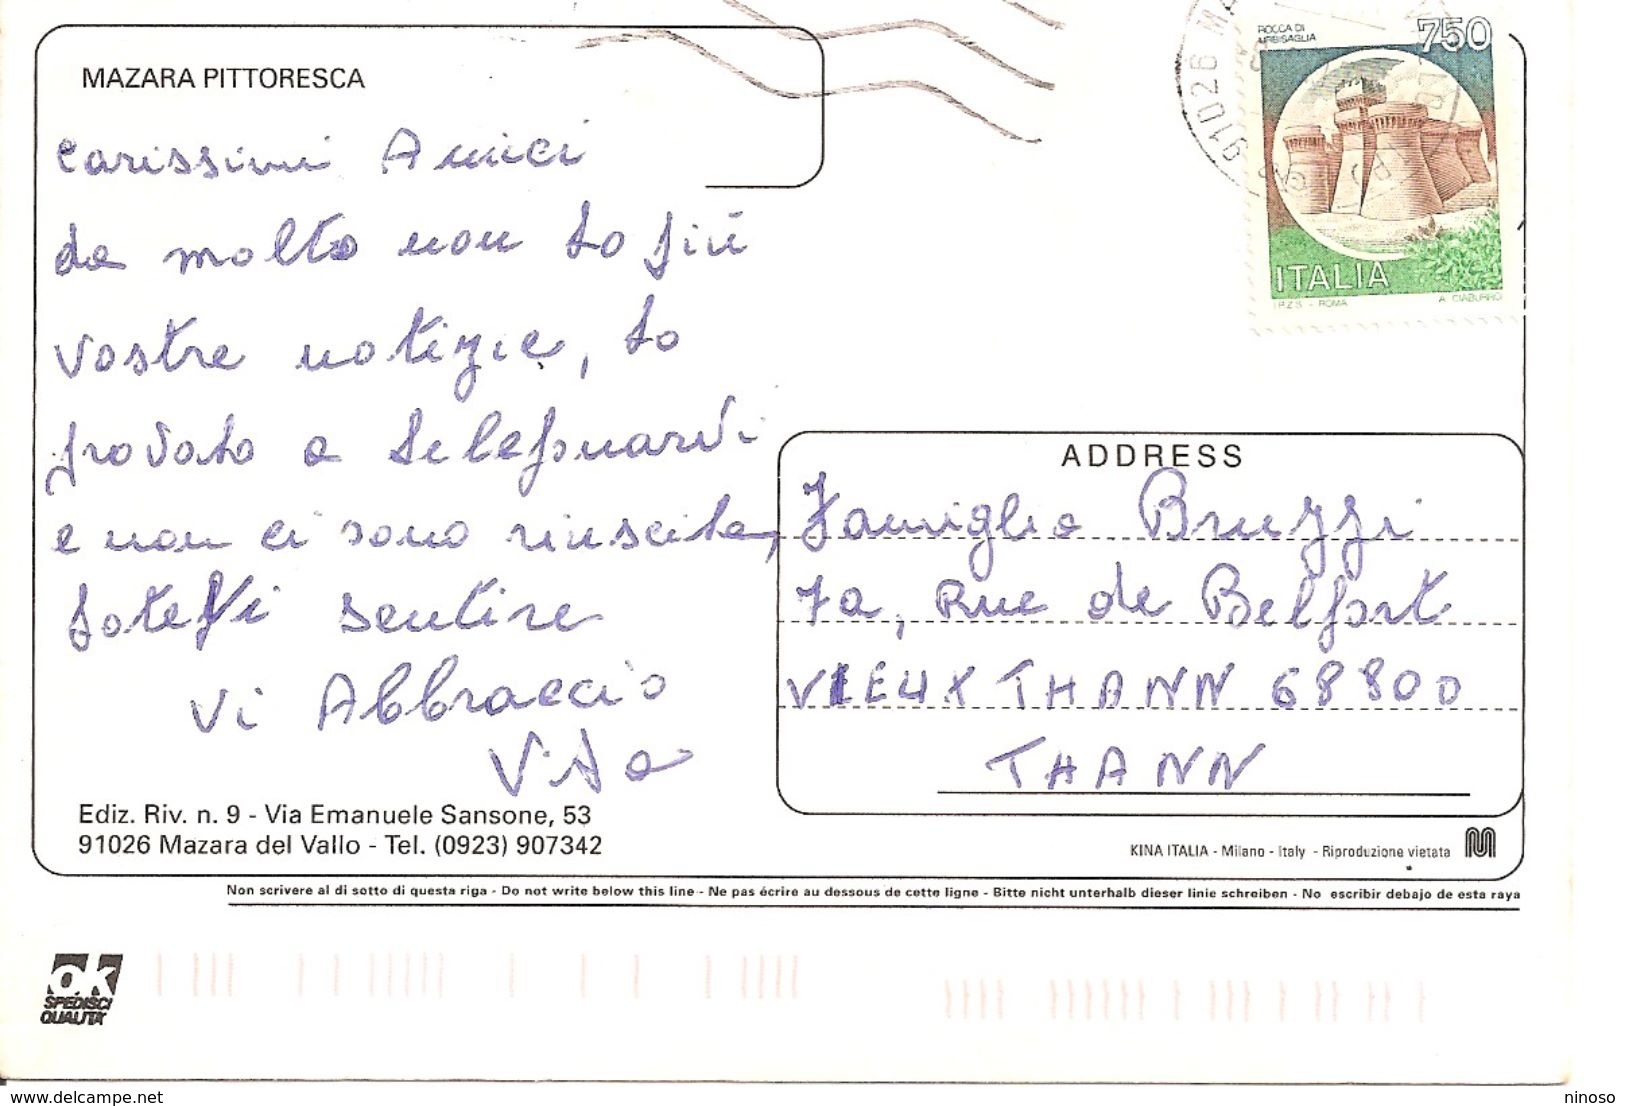 MAZARA PITTORESCA
Carissimi Amici
da molto non so più
vostre notizie, ho
provato a telefonarvi
e non ci sono riuscita,
fatevi sentire
Vi Abbraccio
ROCCA DI
URBISAGLIA
750
ITALIA
I.P.Z.S. - ROMA
A. CIABURRO
91026 MA
ADDRESS
Famiglia Bruzzi
7a, Rue de Belfort
VIEUX THANN 68800
THANN
Ediz. Riv. n. 9 - Via Emanuele Sansone, 53
91026 Mazara del Vallo - Tel. (0923) 907342
KINA ITALIA - Milano - Italy - Riproduzione vietata
Non scrivere al di sotto di questa riga - Do not write below this line - Ne pas écrire au dessous de cette ligne - Bitte nicht unterhalb dieser linie schreiben - No escribir debajo de esta raya
ok
SPEDISCI
QUALITA'
delcampe.net
ninoso